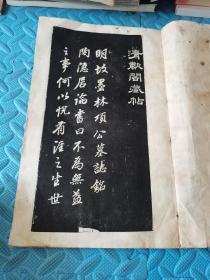 清歗閣藏帖
明故墨林項公墓誌銘
陶隱居論書曰不為無益
之事何以悅有涯之生世